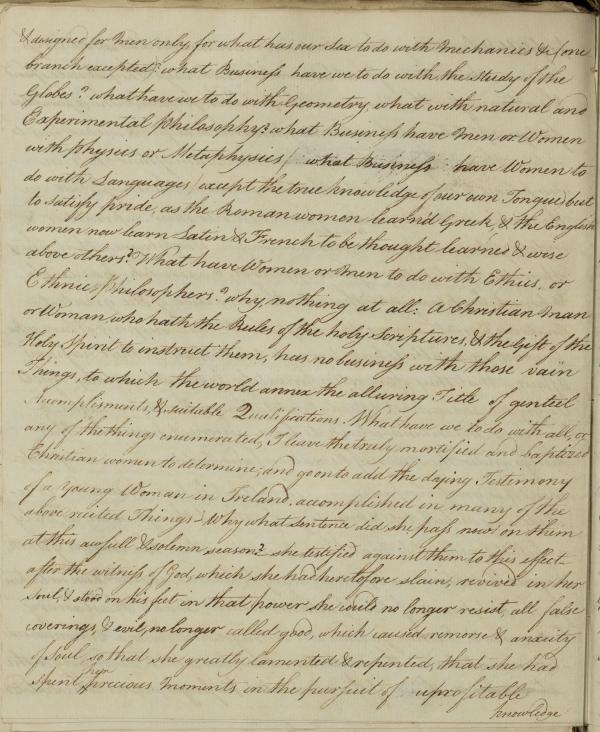 & designed for men only, for what has our Sex to do with Mechanics & (one
branch excepted) what Business have we to do with the Study of the
Globes? what have we to do with Geometry what with natural and
Experimental philosophy? what Business have Men or Women
with physics or Metaphysics / what Business have Women to
do with Languages (except the true knowledge of our own Tongue) but
to satisfy pride, as the Roman women learnd Greek, & the English
women now learn Latin & French to be thought learned & wise
above others? What have Women or Men to do with Ethics, or
Ethnic philosophers? why, nothing at all: A Christian Man
or Woman who hath the Rules of the holy Scriptures, & the Gift of the
Holy Spirit to instruct them, has no business with those vain
Things, to which the world annex the alluring Title of genteel
Accomplisments, & suitable Qualifications. What have we to do with all, or
any of the things enumerated, I leave the truly mortified and baptized
Christian women to determine; and go on to add the dying Testimony
of a Young Woman in Ireland, accomplished in many of the
above recited Things - Why what Sentence did she pass now on them
at this awfull & solemn season? she testified against them to this effect
after the witness of God, which she had heretofore slain, revived in her
Soul, & stood on his feet in that power she could no longer resist, all false
coverings, & evil, no longer called good, which caused remorse & anxiety
of Soul so that she greatly lamented & repented, that she had
spent her precious Moments in the pursuit of uprofitable
knowledge